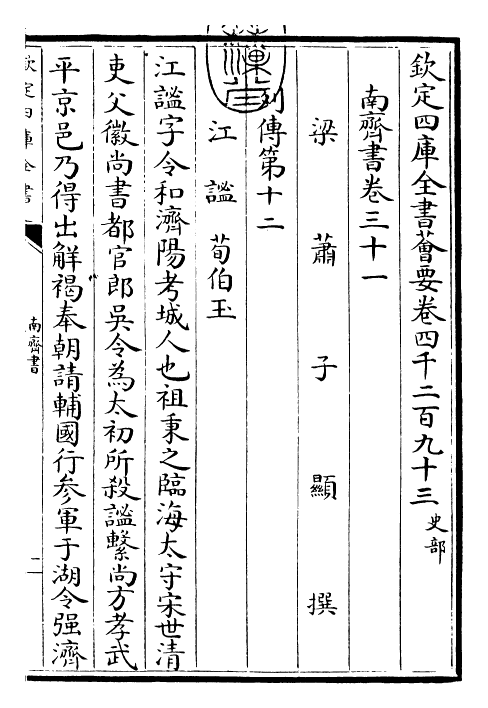 欽定四庫全書薈要卷四千二百九十三 史部
南齊書卷三十一
梁蕭子顯撰
列傳第十二
江謐 荀伯玉
江謐字令和濟陽考城人也祖秉之臨海太守宋世清
吏父徽尚書都官郎吳令為太初所殺謐繫尚方孝武
平京邑乃得出解褐奉朝請輔國行參軍于湖令强濟
欽定四庫全書
南齊書